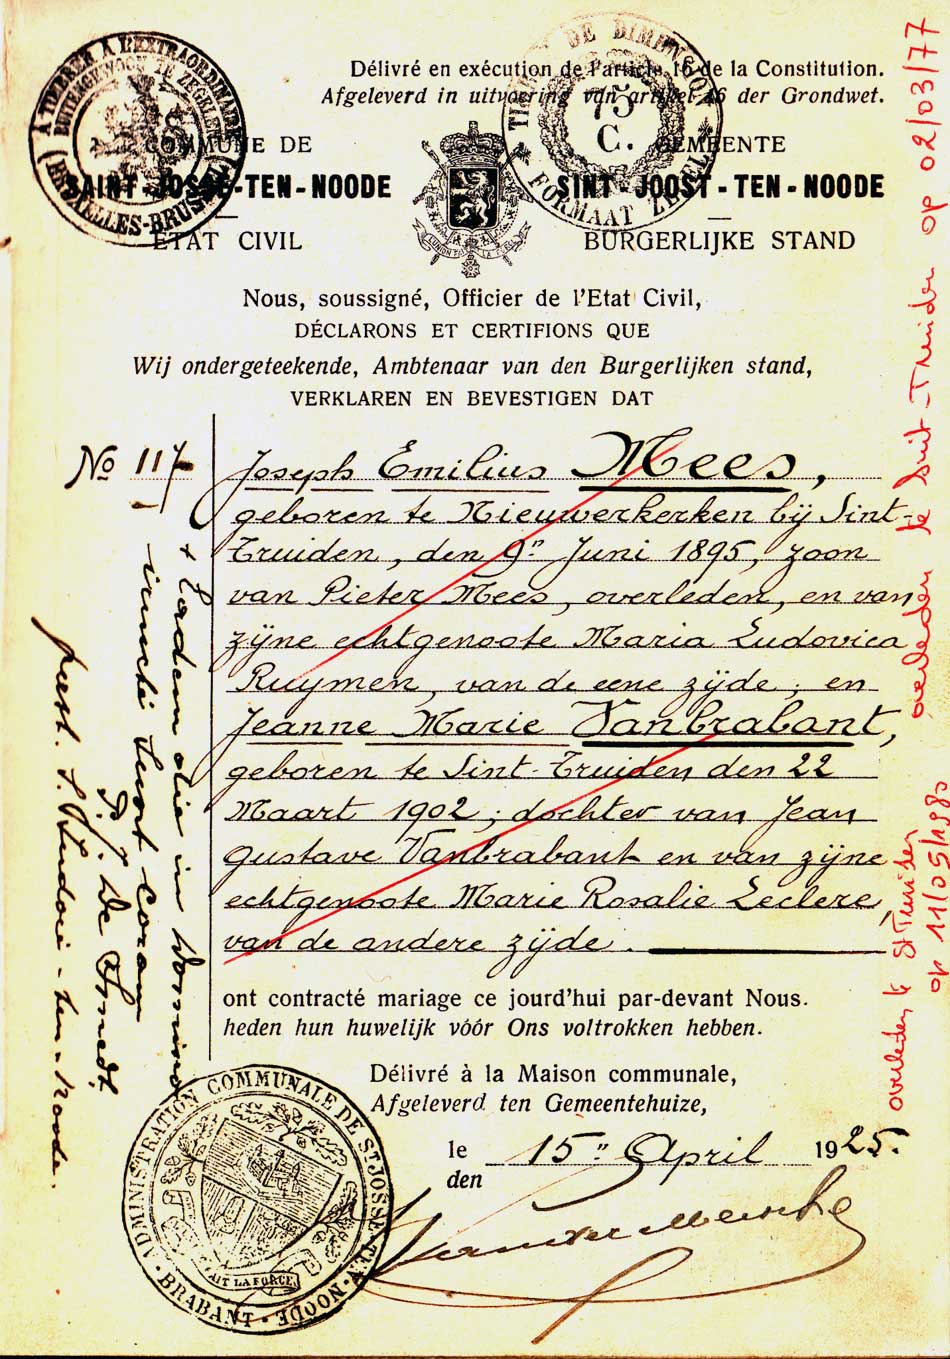 Délivré en exécution de l'article 16 de la Constitution.
Afgeleverd in uitvoering van artikel 16 der Grondwet.
A TIMBRER A L'EXTRAORDINAIRE
BUITENGEWOON TE ZEGELEN
(BRUXELLES-BRUSSEL)
DE DIMENSION
75
C.
FORMAAT ZEGEL
COMMUNE DE
SAINT-JOSSE-TEN-NOODE
ETAT CIVIL
GEMEENTE
SINT-JOOST-TEN-NOODE
BURGERLIJKE STAND
L'UNION FAIT LA FORCE
Nous, soussigné, Officier de l'Etat Civil,
DÉCLARONS ET CERTIFIONS QUE
Wij ondergeteekende, Ambtenaar van den Burgerlijken stand,
VERKLAREN EN BEVESTIGEN DAT
No 117
Joseph Emilius Mees,
geboren te Nieuwerkerken bij Sint-
Truiden, den 9n Juni 1895, zoon
van Pieter Mees, overleden, en van
zijne echtgenoote Maria Ludovica
Ruymen, van de eene zijde; en
Jeanne Marie Vanbrabant,
geboren te Sint-Truiden den 22
Maart 1902; dochter van Jean
Gustave Vanbrabant en van zijne
echtgenoote Marie Rosalie Leclere,
van de andere zijde.
+ Eadem die in Domino
iuncti sunt coram
P. J. De Smedt,
ten-Noode.
ont contracté mariage ce jourd'hui par-devant Nous.
heden hun huwelijk vóór Ons voltrokken hebben.
Délivré à la Maison communale,
Afgeleverd ten Gemeentehuize,
le
den
15n April 1925.
ADMINISTRATION COMMUNALE DE ST JOSSE-TEN-NOODE
BRABANT
FAIT LA FORCE
overleden te Sint-Truiden op 02/03/77
overleden te St Truiden
op 11/05/1980